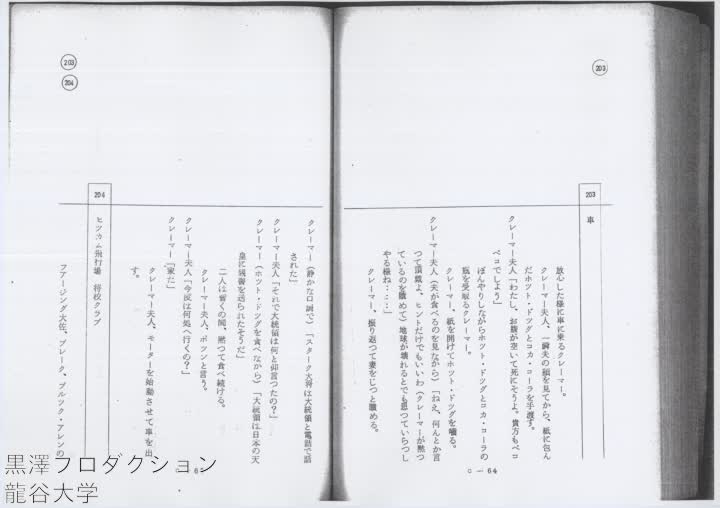 203
203
車
放心した様に車に乗るクレーマー。
クレーマー夫人、一瞬夫の顔を見てから、紙に包ん
だホット・ドッグとコカ・コーラを手渡す。
クレーマー夫人「わたし、お腹が空いて死にそうよ。貴方もペコ
ペコでしょう」
ぼんやりしながらホット・ドッグとコカ・コーラの
瓶を受取るクレーマー。
クレーマー、紙を開けてホット・ドッグを囓る。
クレーマー夫人(夫が食べるのを見ながら)「ねえ、何んとか言
って頂戴よ、ヒントだけでもいいわ(クレーマーが黙っ
ているのを眺めて)地球が壊れるとでも思っていらっし
やる様ね……」
クレーマー、振り返って妻をじっと眺める。
C—64
203
204
クレーマー(静かな口調で)「スターク大将は大統領と電話で話
された」
クレーマー夫人「それで大統領は何と仰言ったの?」
クレーマー(ホット・ドッグを食べながら)「大統領は日本の天
皇に親書を送られたそうだ」
二人は暫くの間、黙って食べ続ける。
クレーマー夫人、ポツンと言う。
クレーマー夫人「今度は何処へ行くの?」
クレーマー「家だ」
クレーマー夫人、モーターを始動させて車を出
す。
204
ヒッカム飛行場 将校クラブ
ファージング大佐、ブレーク、ブルック・アレンの
C—6
黒澤プロダクション
龍谷大学